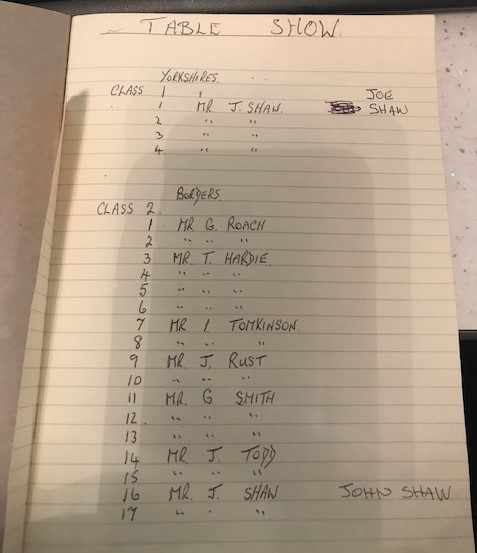 TABLE SHOW.
YORKSHIRES.
CLASS 1
JOE
1 MR. J. SHAW. SHAW
2 " "
3 " "
4 " "
BORDERS.
CLASS 2.
1 MR G. ROACH
2 " " "
3 MR. T. HARDIE.
4 " " "
5 " " "
6 " " "
7 MR I. TOMKINSON.
8 " " "
9 MR. J. RUST
10 " " "
11 MR. G. SMITH
12. " " "
13 " " "
14 MR. J. TODD
15 " " "
16 MR. J. SHAW JOHN SHAW
17 " " "